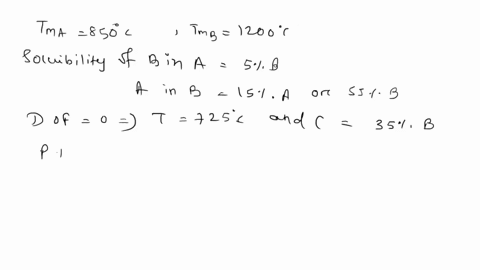 TmA = 850°C , TmB = 1200°C
Soluibility of B in A = 5%. B
A in B = 15%. A or 55%. B
D of = 0 => T = 725°C and C = 35%. B
P.